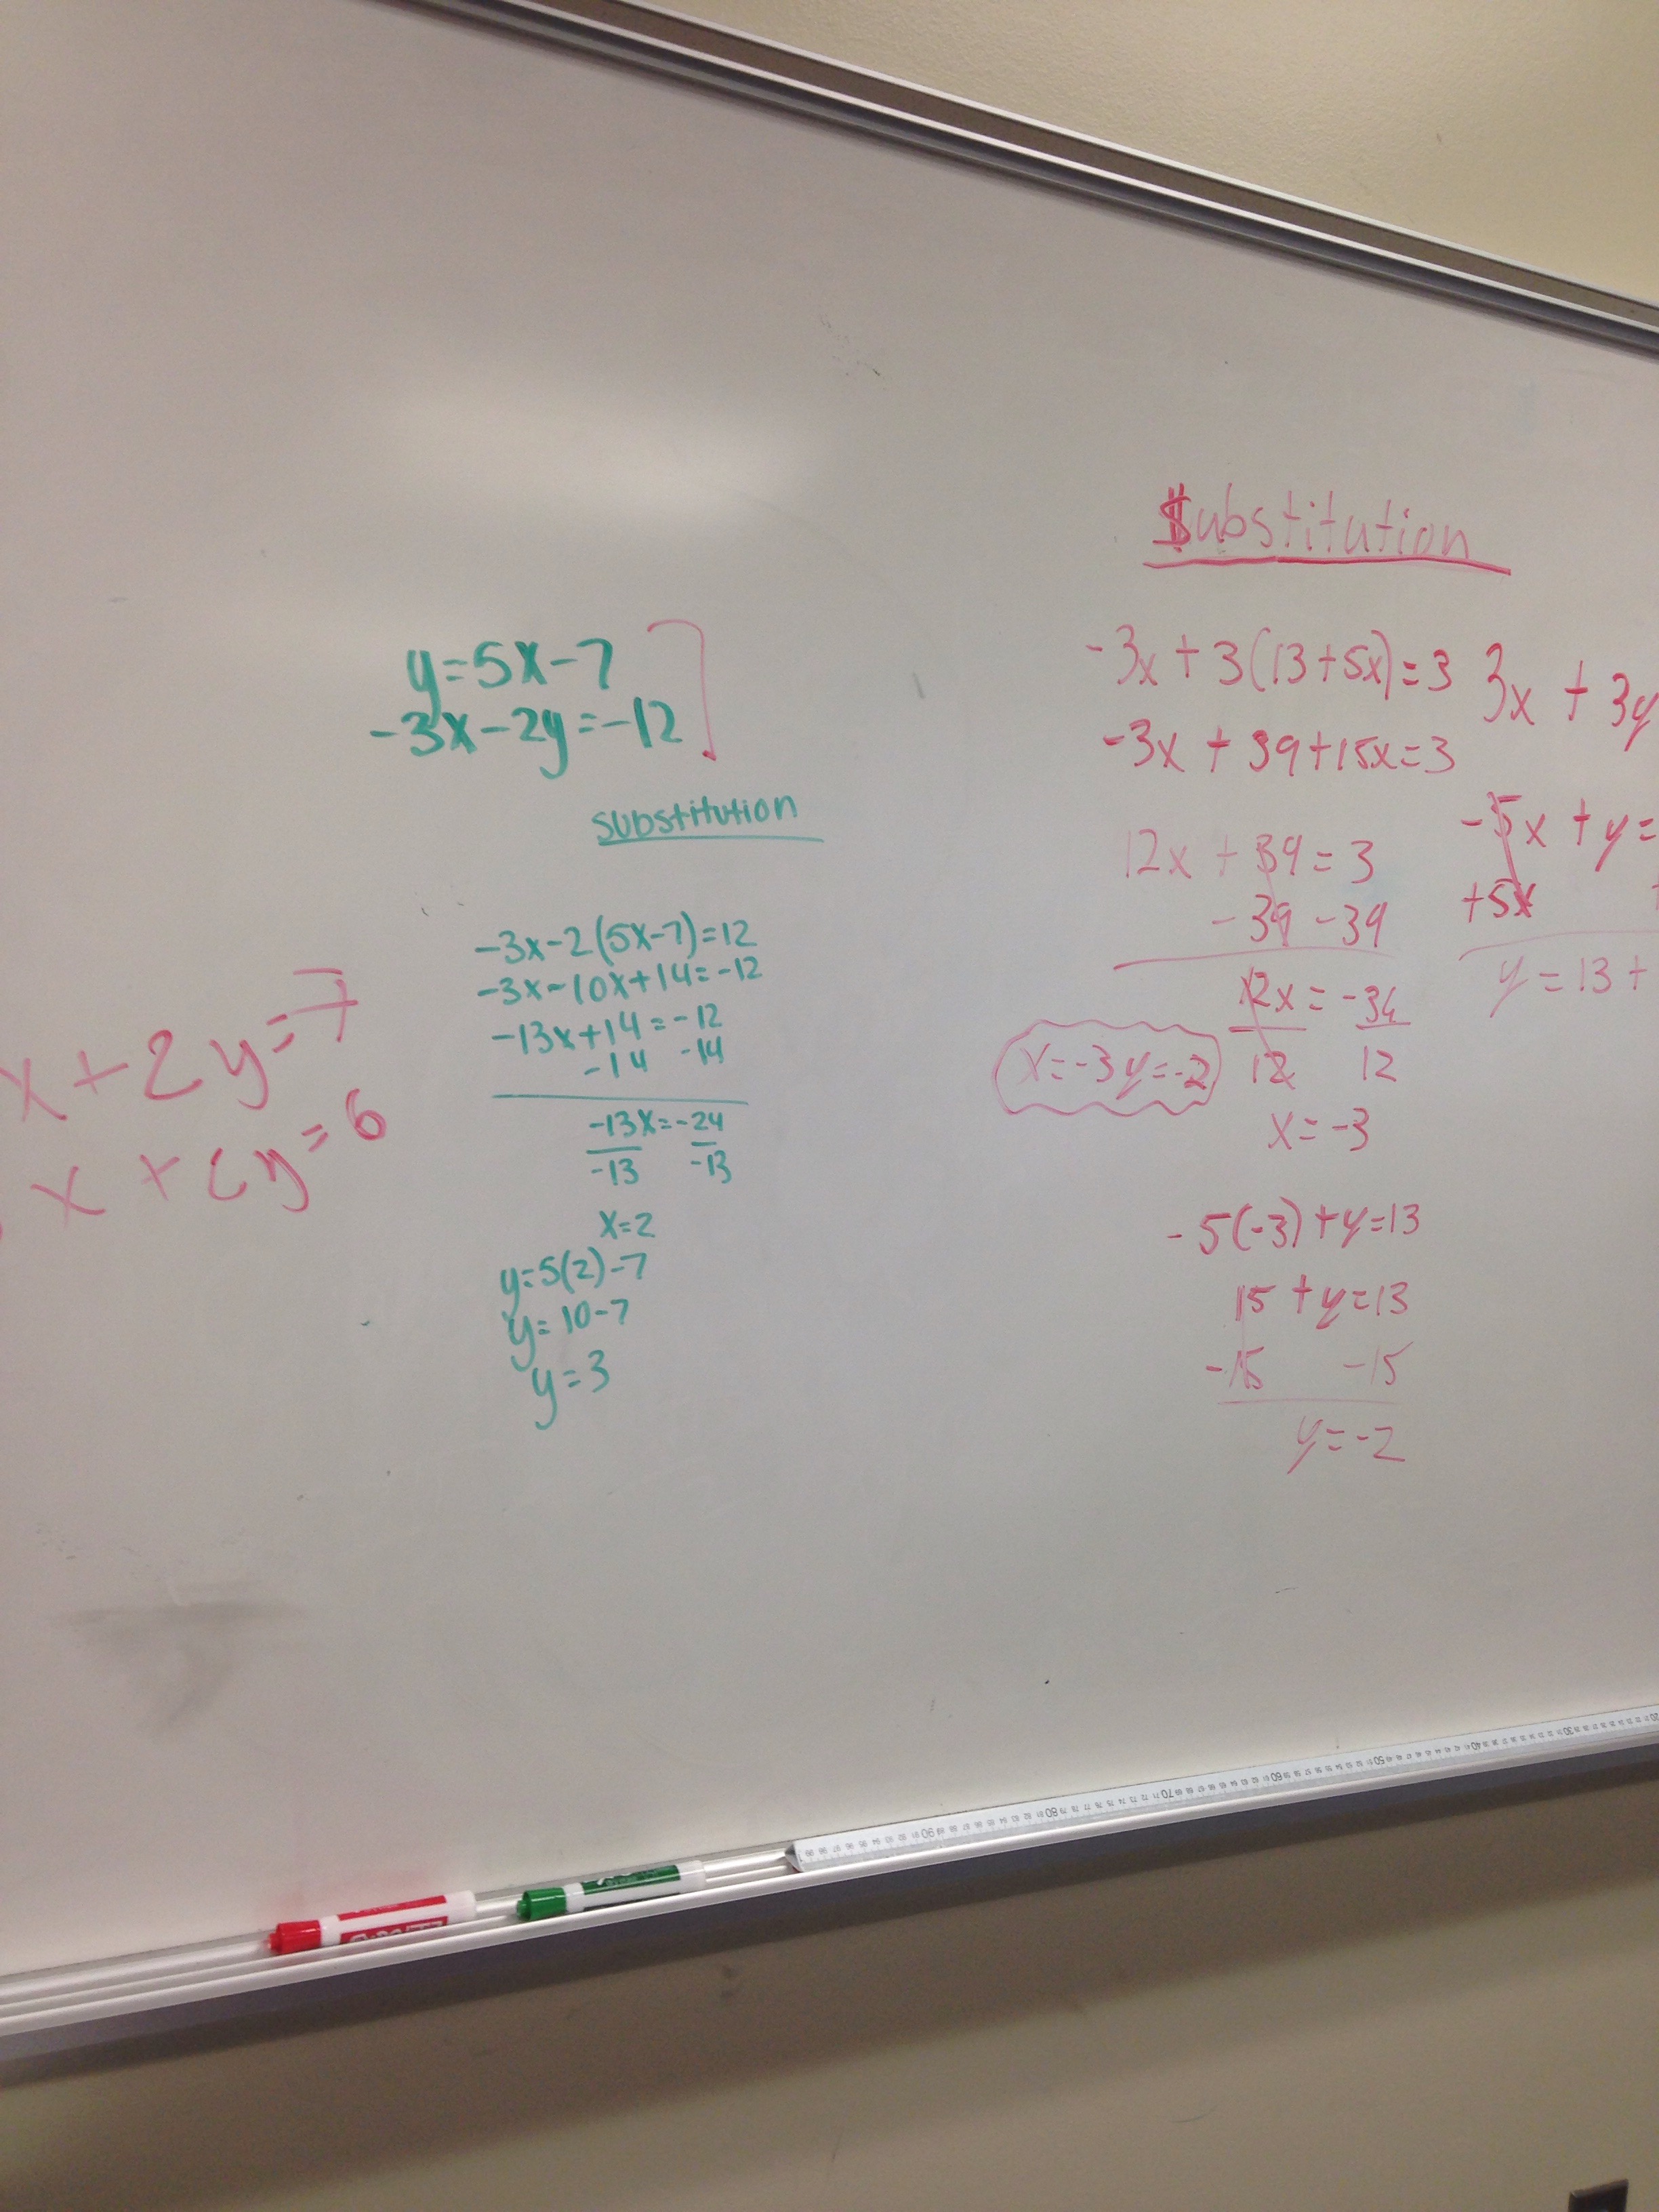 y=5x-7
-3x-2y=-12
substitution
-3x-2(5x-7)=12
-3x-10x+14=-12
-13x+14=-12
-14 -14
-13x=-24
-13 -13
x=2
y=5(2)-7
y=10-7
y=3
x+2y=7
x+2y=6
Substitution
-3x+3(13+5x)=3
-3x+39+15x=3
12x+39=3
-39 -39
12x=-36
12 12
x=-3
x=-3 y=-2
-5(-3)+y=13
15+y=13
-15 -15
y=-2
3x+3y
-5x+y=
+5x
y=13+